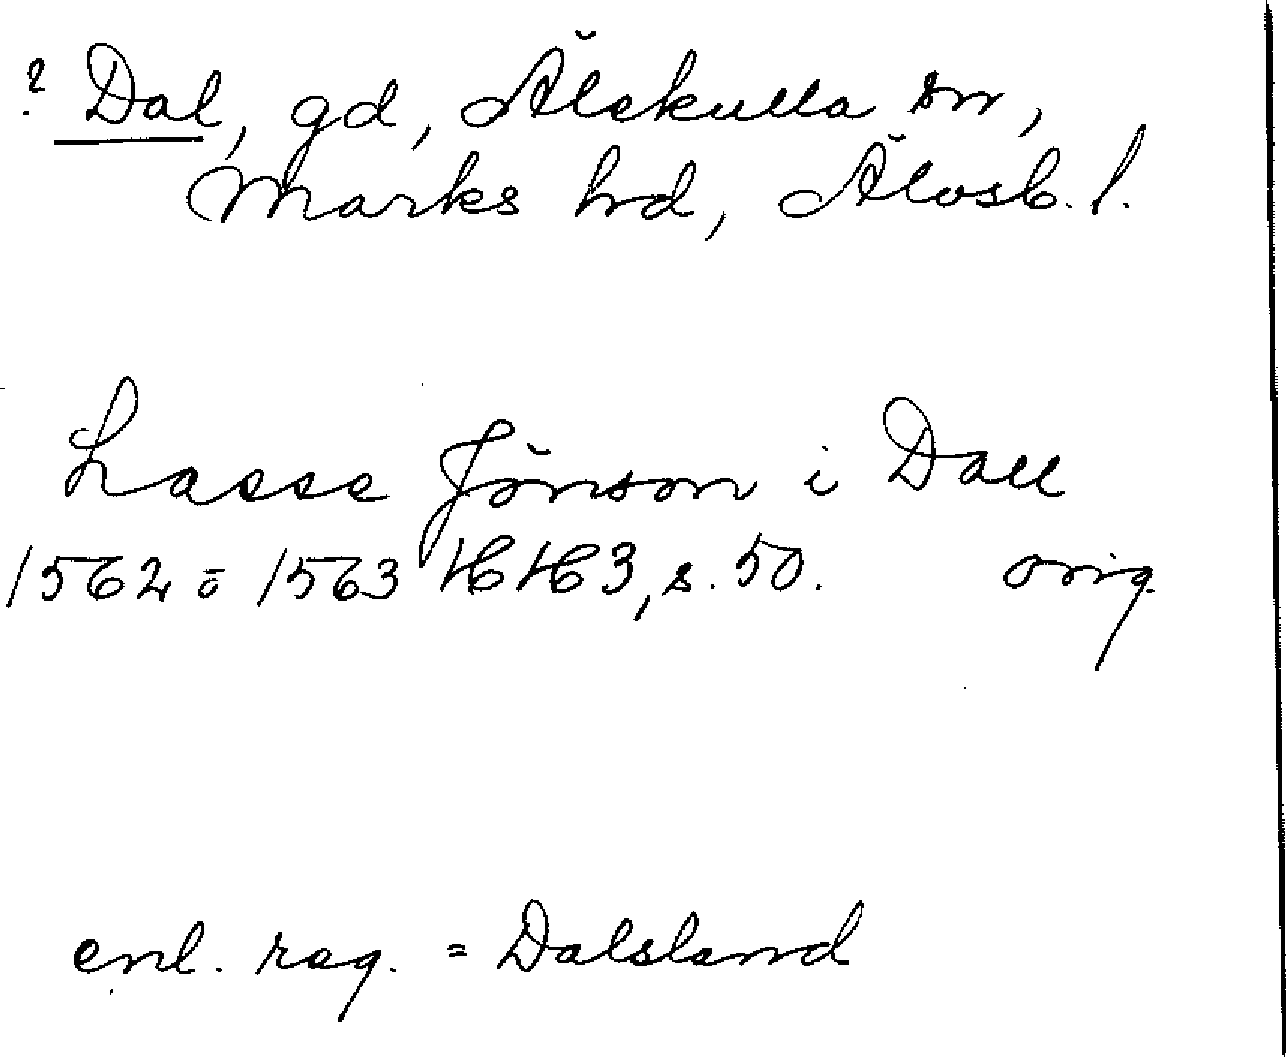 ? Dal, gd, Älekulla sn,
Marks hd, Älvsb. l.
Lasse Jönson i Dall
1562 ö 1563 HH 3, s. 50. orig.
enl. reg. = Dalsland